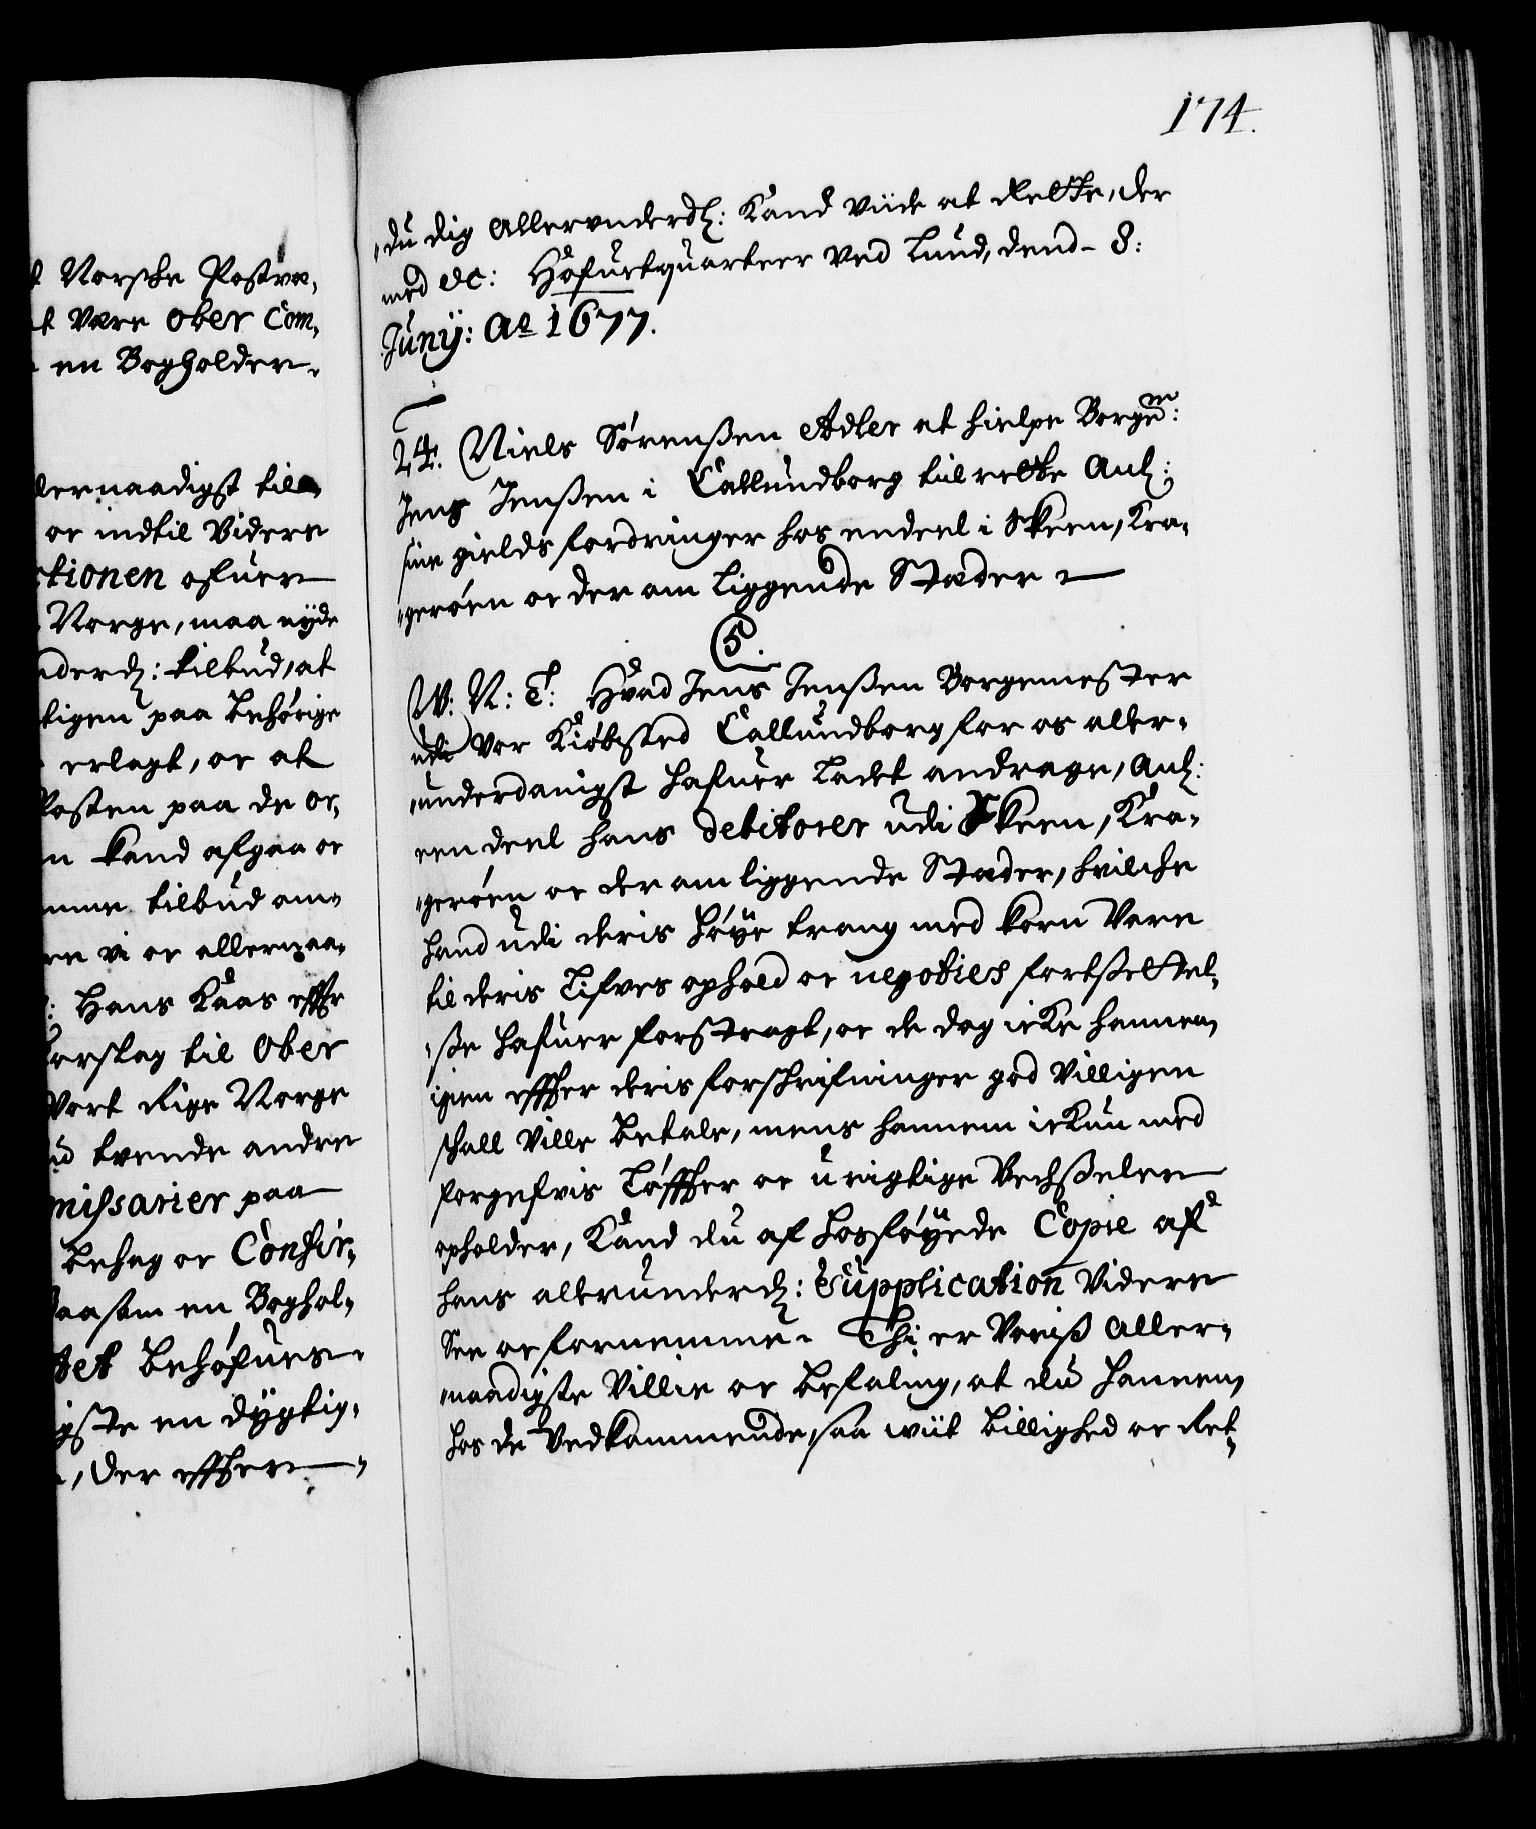 t Norske Postvæ,
at være Ober Com,
en Bogholder.
llernaadigst till
oc indtil Videre
ctionen ofver
Norge, maa nyde
nderd: tilbud, at
tigen paa behørige
erlagt, oc at
Posten paa de or,
n kand afgaa oc
mme tilbud om,
re vi oc allernaa,
: Hans Kaas effter
forslag til Ober
Vort Rige Norge
tvende andre
missarier paa
behag oc Confir,
saasom en Boghol,
tet behøfves.
gste en dygtig,
, der effter
174.
du dig allerunderd: Kand viide at Rette, der
med &c: Hofvetquarteer ved Lund, dend 8:
Junij: Ao 1677.
24. Niels Sørenßen Adler at hielpe Borgem:
Jens Jenßen i Callundborg til rette Anl:
sine gields fordringer hos endeel i Skeen, Kra,
gerøen oc der om liggende Stæder
5.
W: N: T: Hvad Jens Jenßen Borgemester
udi vor Kiøbsted Callundborg for os aller,
underdanigst hafver ladet andrage, Anl:
een deel hans debitorer udi Skeen, Kra,
gerøen oc der om liggende Stæder, hvilche
hand udi deris høye trang med korn Vare
til deris Lifves ophold oc negoties fortßettel,
ße hafver forstragt, oc de dog icke hannem
igien effter deris forschrifninger god villigen
schall ville betale, mens hannem ickun med
forgefvis Løffter oc urigtige Vechßeler
opholder, Kand du af hosføyede Copie af
hans allerunderd: Supplication videre
See oc fornemme. Thi er Voriß aller,
naadigste Villie oc befaling, at du hannem
hos de Vedkommende, saa wiit billighed oc Ret,